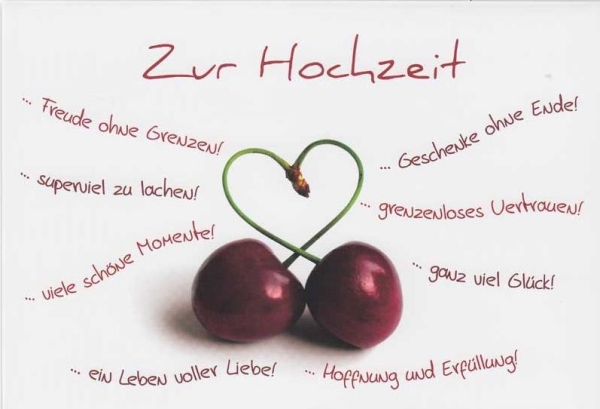 Zur Hochzeit
... Freude ohne Grenzen!
... Geschenke ohne Ende!
... superviel zu lachen!
... grenzenloses Vertrauen!
... viele schöne Momente!
... ganz viel Glück!
... ein Leben voller Liebe!
... Hoffnung und Erfüllung!